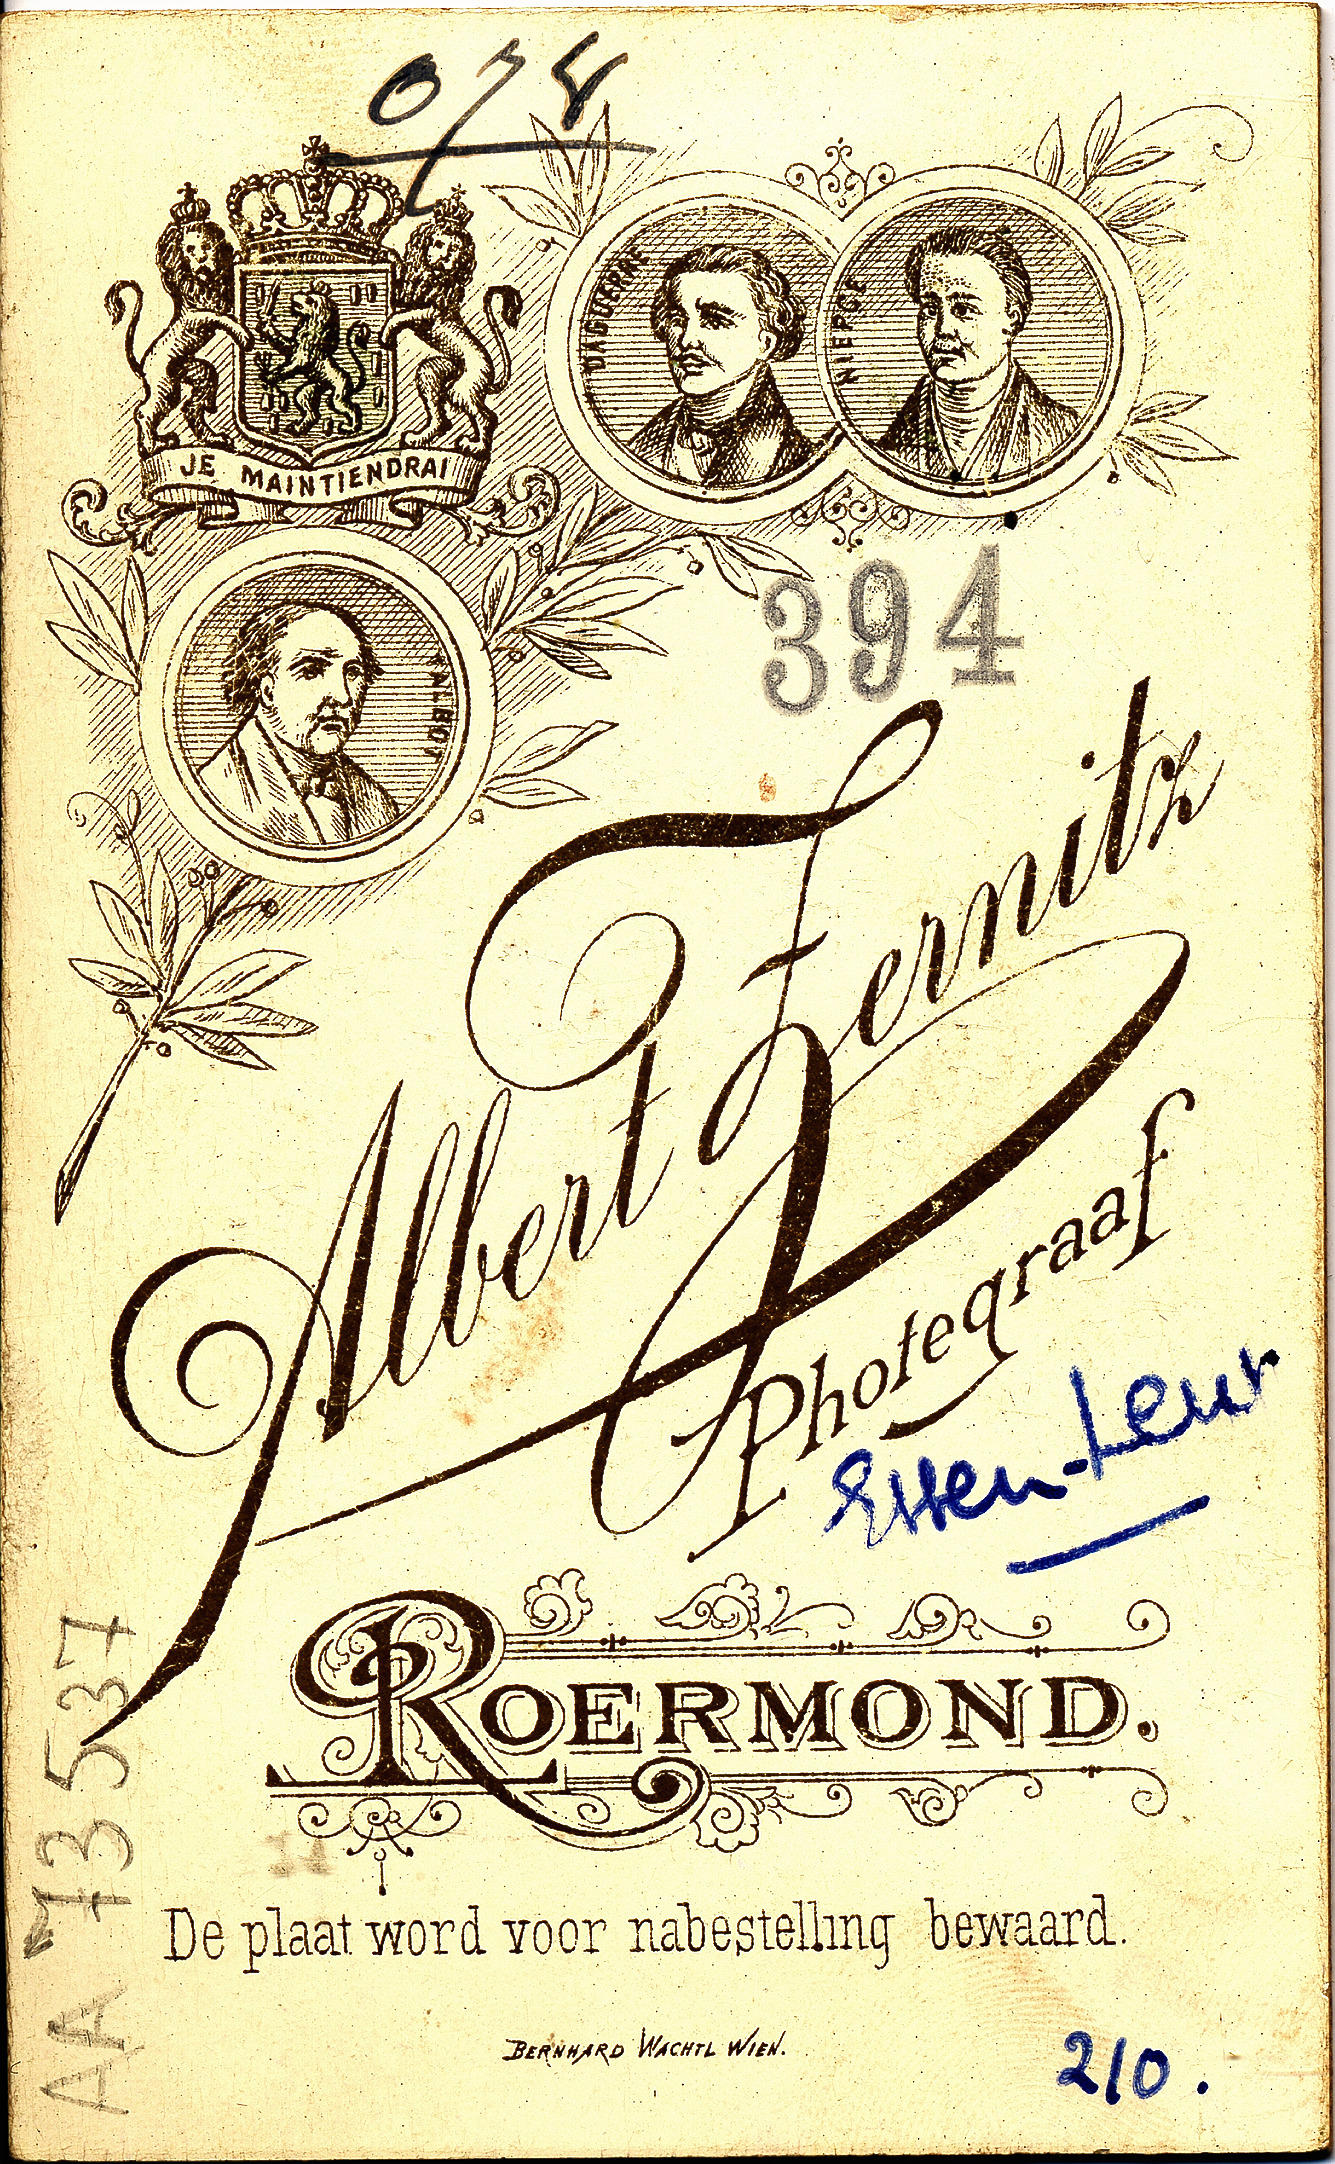 078
JE MAINTIENDRAI
DAGUERRE
NIEPCE
TALBOT
394
Albert Fernitz
Photograaf
Etten-Leur
ROERMOND.
De plaat word voor nabestelling bewaard.
BERNHARD WACHTL WIEN.
210.
AA 73537